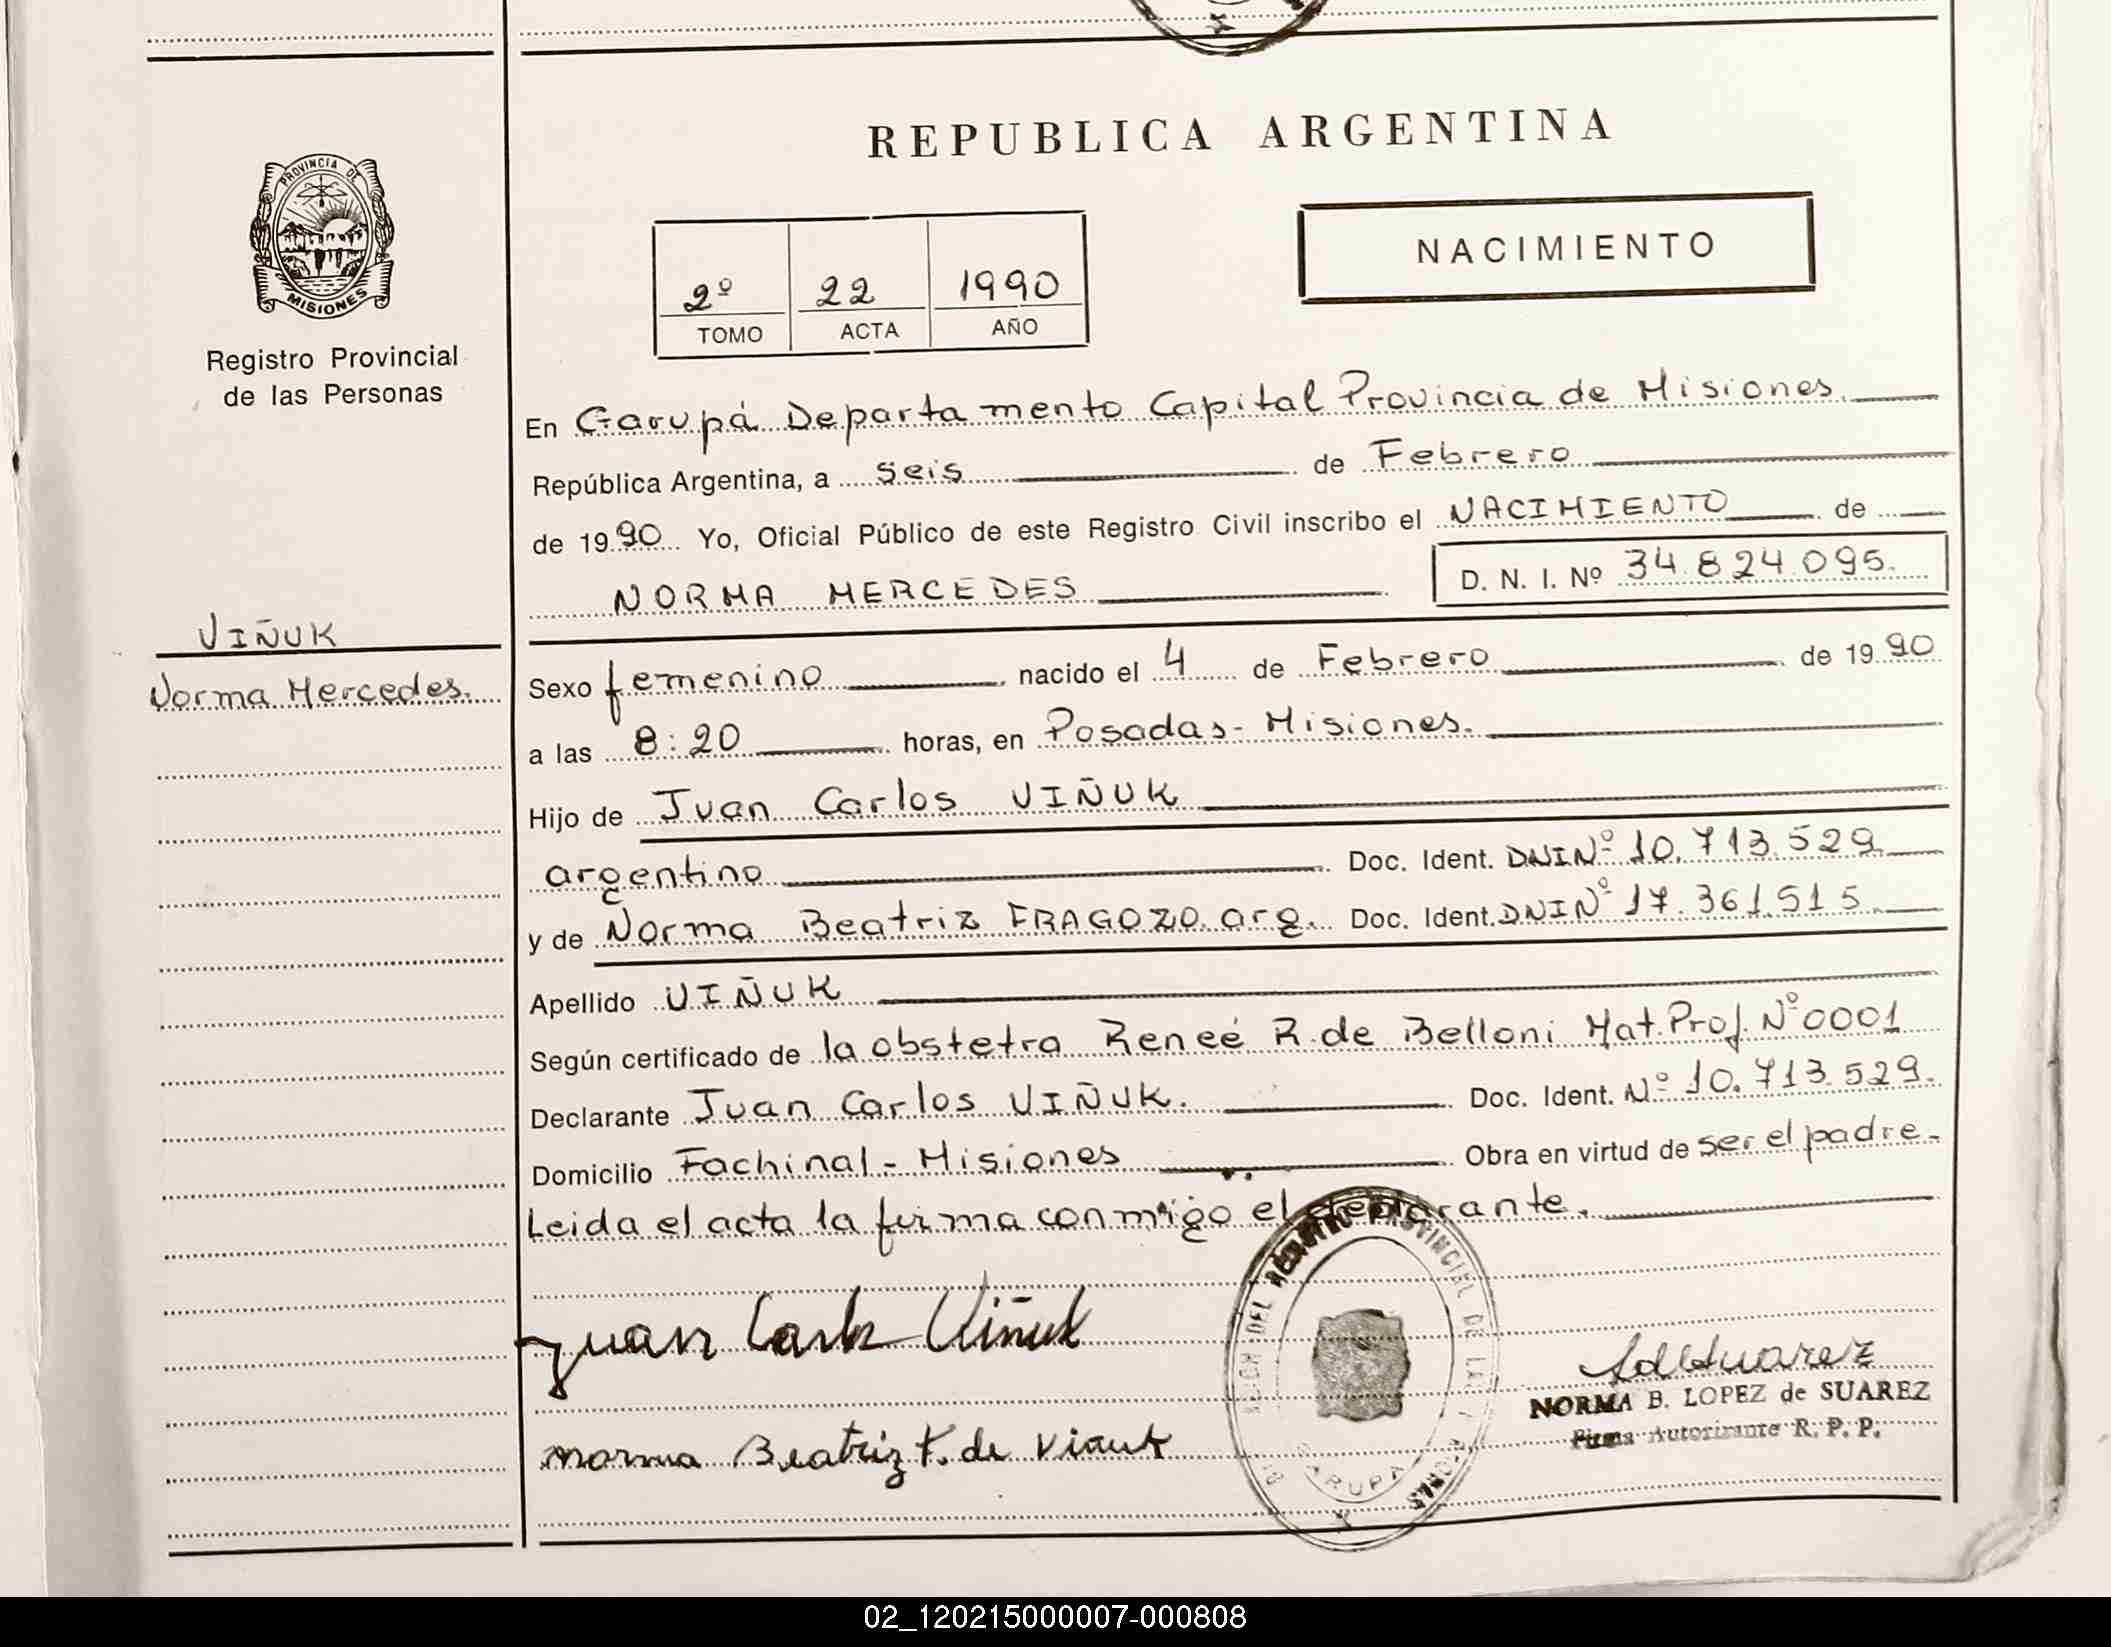 REPUBLICA ARGENTINA
PROVINCIA DE
MISIONES
Registro Provincial
de las Personas
NACIMIENTO
2º 22 1990
TOMO ACTA AÑO
En Garupá Departamento Capital Provincia de Misiones.
República Argentina, a seis de Febrero
de 1990 Yo, Oficial Público de este Registro Civil inscribo el NACIMIENTO de
NORMA MERCEDES D. N. I. Nº 34.824.095.
VIÑUK
Norma Mercedes.
Sexo femenino nacido el 4 de Febrero de 1990
a las 8:20 horas, en Posadas - Misiones.
Hijo de Juan Carlos VIÑUK
argentino Doc. Ident. DNI Nº 10.713.529
y de Norma Beatriz FRAGOZO arg. Doc. Ident. DNI Nº 17.361.515
Apellido VIÑUK
Según certificado de la obstetra Reneé R. de Belloni Mat. Prof. Nº 0001
Declarante Juan Carlos VIÑUK. Doc. Ident. Nº 10.713.529.
Domicilio Fachinal - Misiones Obra en virtud de ser el padre.
Leida el acta la firma conmigo el declarante.
Juan Carlos Viñuk
Norma Beatriz F. de Viñuk
GARUPA
NORMA B. LOPEZ de SUAREZ
Firma Autorizante R. P. P.
02_120215000007-000808